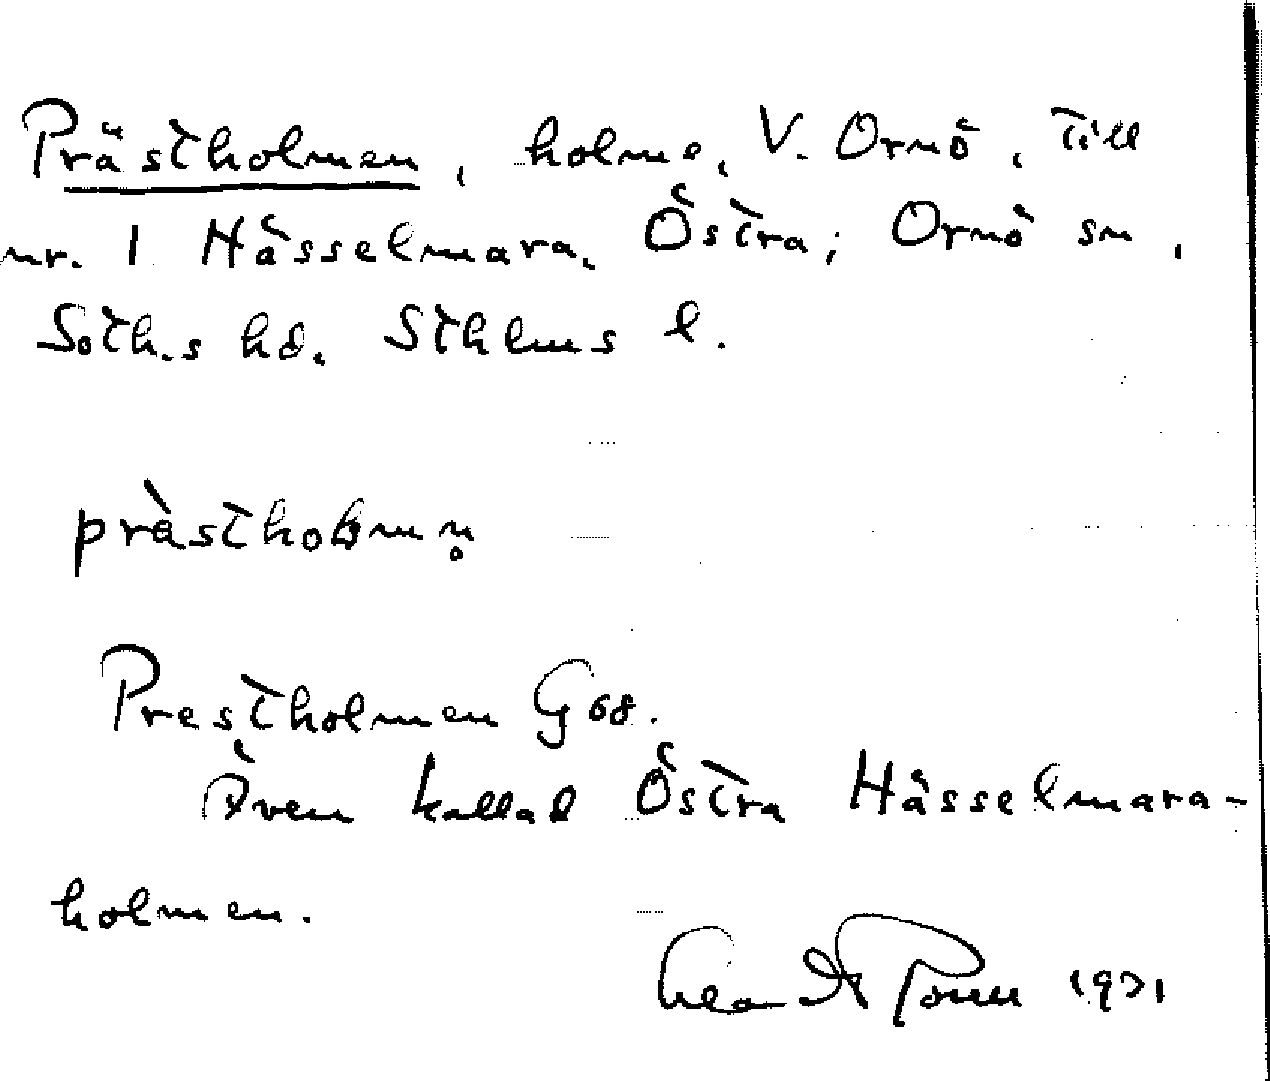 Prästholmen, holme, V. Ornö, till
nr. 1 Hässelmara, Östra; Ornö sn,
Soth.s hd. Sthlms l.
prä̀stholmn̥
Prestholmen G 68.
Även kallad Östra Hässelmara-
holmen.
1931